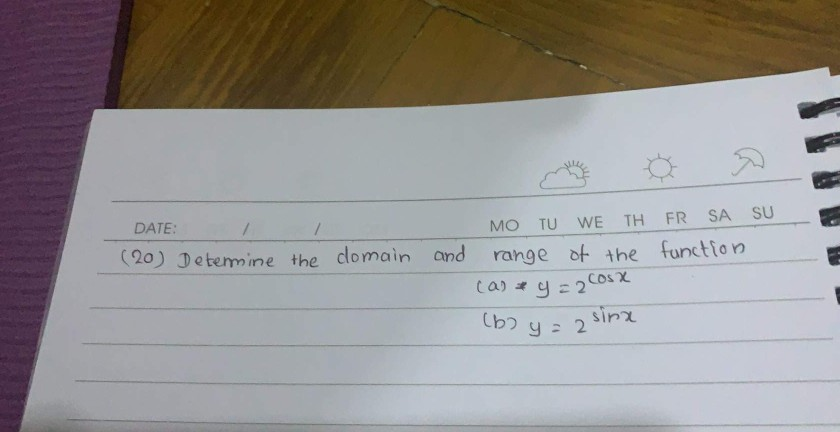 DATE: / /
MO TU WE TH FR SA SU
(20) Determine the domain and range of the function
(a) y = 2^cosx
(b) y = 2^sinx